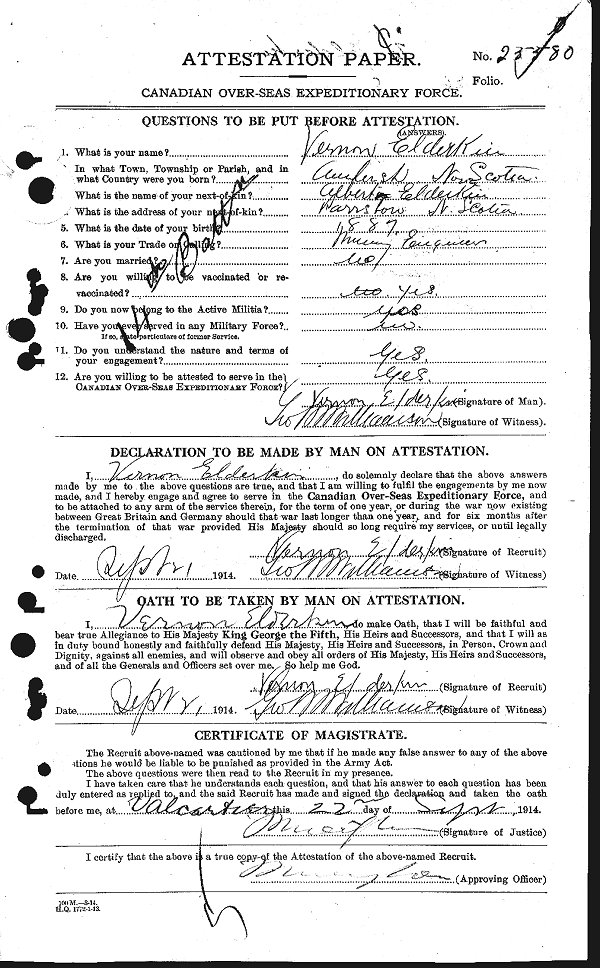 ATTESTATION PAPER.
No.
Folio.
CANADIAN OVER-SEAS EXPEDITIONARY FORCE.
QUESTIONS TO BE PUT BEFORE ATTESTATION.
(ANSWERS).
1. What is your name? Vernon Elderkin
In what Town, Township or Parish, and in
what Country were you born? Amherst Nova Scotia.
What is the name of your next-of-kin? Albert Elderkin
What is the address of your next-of-kin? N. Scotia
5. What is the date of your birth? 1887.
6. What is your Trade or Calling? Engineer
7. Are you married? no
8. Are you willing to be vaccinated or re-
vaccinated? no yes.
9. Do you now belong to the Active Militia? yes
10. Have you ever served in any Military Force? no.
If so, state particulars of former Service.
11. Do you understand the nature and terms of
your engagement? Yes.
12. Are you willing to be attested to serve in the
CANADIAN OVER-SEAS EXPEDITIONARY FORCE? Yes.
Vernon Elderkin (Signature of Man).
Geo Williamson (Signature of Witness).
DECLARATION TO BE MADE BY MAN ON ATTESTATION.
I, Vernon Elderkin, do solemnly declare that the above answers
made by me to the above questions are true, and that I am willing to fulfil the engagements by me now
made, and I hereby engage and agree to serve in the Canadian Over-Seas Expeditionary Force, and
to be attached to any arm of the service therein, for the term of one year, or during the war now existing
between Great Britain and Germany should that war last longer than one year, and for six months after
the termination of that war provided His Majesty should so long require my services, or until legally
discharged.
Vernon Elderkin (Signature of Recruit)
Date 1914. Geo Williamson (Signature of Witness)
OATH TO BE TAKEN BY MAN ON ATTESTATION.
I, Vernon Elderkin do make Oath, that I will be faithful and
bear true Allegiance to His Majesty King George the Fifth, His Heirs and Successors, and that I will as
in duty bound honestly and faithfully defend His Majesty, His Heirs and Successors, in Person, Crown and
Dignity, against all enemies, and will observe and obey all orders of His Majesty, His Heirs and Successors,
and of all the Generals and Officers set over me. So help me God.
Vernon Elderkin (Signature of Recruit)
Date 1914. Geo Williamson (Signature of Witness)
CERTIFICATE OF MAGISTRATE.
The Recruit above-named was cautioned by me that if he made any false answer to any of the above
tions he would be liable to be punished as provided in the Army Act.
The above questions were then read to the Recruit in my presence.
I have taken care that he understands each question, and that his answer to each question has been
duly entered as replied to, and the said Recruit has made and signed the declaration and taken the oath
before me, at Valcartier this 22 day of Sept 1914.
(Signature of Justice)
I certify that the above is a true copy of the Attestation of the above-named Recruit.
(Approving Officer)
100 M.-8-14.
H.Q. 1772-1-13.